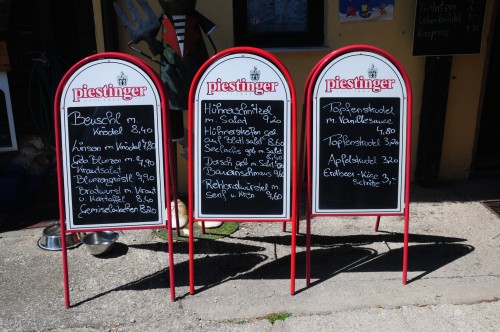 piestinger
Beuschl m.
Knödel 8,40
Linsen m. Knödel 7,80
Geb. Blunzen m. 9,90
Krautsalat
Blunzengröstl 9,20
Bratwurst m. Kraut
u. Kartoffel 8,40
Gemüselaibchen 8,20
piestinger
Hühnerschnitzel
m. Salat 9,20
Hühnerstreifen geb.
auf Blattsalat 8,40
Seelachs geb. m.
Salat
Dorsch geb. m. Salat
Bauernschmaus 9,60
Rehbratwürstel m.
Senf u. Kren 9,60
piestinger
Topfenstrudel
m. Vanillesauce
4,80
Topfenstrudel 3,20
Apfelstrudel 3,20
Erdbeer-Käse 3,-
Schnitte